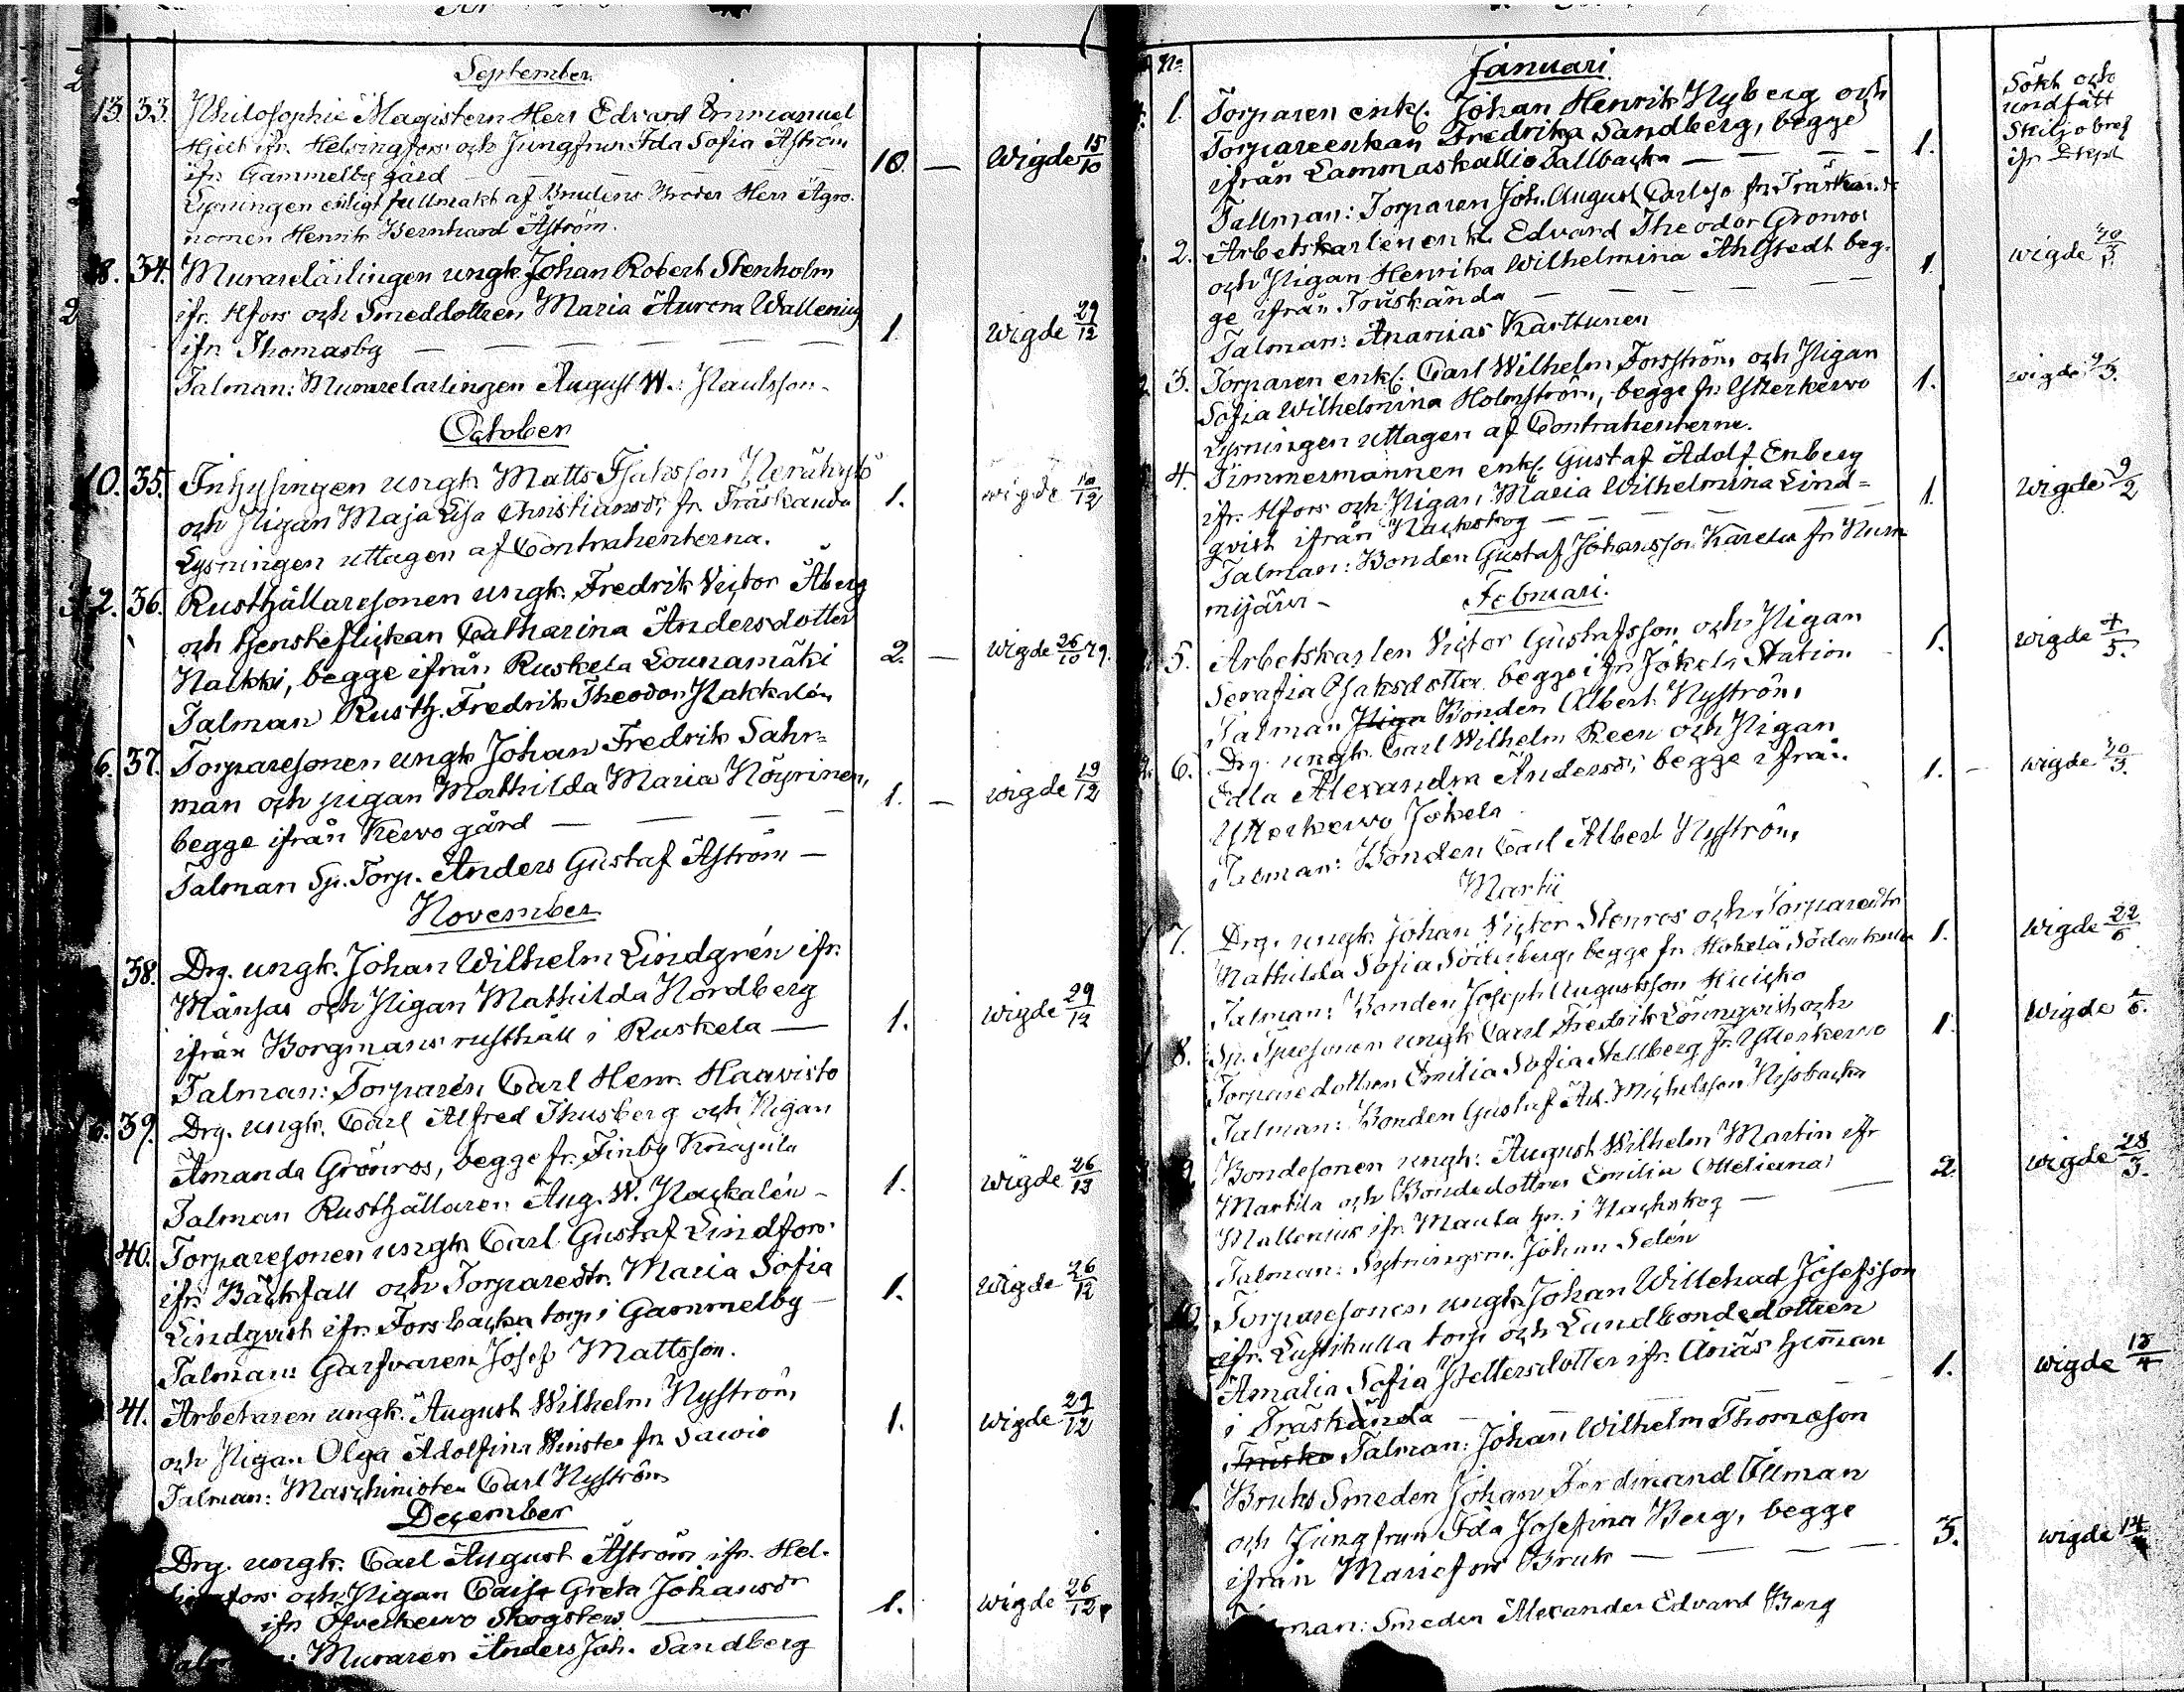 September
13. 33. Philosophie Magistern Herr Edvard Emmanuel
Hjelt ifr. Helsingfors och Jungfrun Ida Sofia Åström
ifr. Gammelby gård — — — — 10. — Wigde 15/10
Lysningen enligt fullmakt af Brudens Broder Herr Agro-
nomen Henrik Bernhard Åström.
18. 34. Murarelärlingen ungk. Johan Robert Stenholm
ifr. Hfors och Smeddottren Maria Aurora Wallenius
ifr. Thomasby — — — — — 1. Wigde 29/12
Talman: Murarelärlingen August W. Paulsson.
October
10. 35. Inhysingen ungk. Matts Isaksson
och Pigan Maja Lisa Christiansdr. fr. Träskända 1. wigde
Lysningen uttagen af Contrahenterna.
12. 36. Rusthållaresonen ungk. Fredrik Victor Åberg
och tjensteflickan Catharina Andersdotter
Nalkki, begge ifrån Ruskela Lounamäki 2. — wigde 26/10 79.
Talman Rusth. Fredrik Theodor Nakkalén
6. 37. Torparesonen ungk. Johan Fredrik Sahr-
man och pigan Mathilda Maria Köyrinen,
begge ifrån Kervo gård — — — 1. — wigde 19/12
Talman Sp. Torp. Anders Gustaf Åström —
November
38. Drg. ungk. Johan Wilhelm Lindgrén ifr.
Mänsas och Pigan Mathilda Nordberg
ifrån Borgmans rusthåll i Ruskela — 1. wigde 29/12
Talman: Torparen Carl Henr. Haavisto
39. Drg. ungk. Carl Alfred Thusberg och Pigan
Amanda Grönros, begge fr. Finby Knapila
Talman Rusthållaren Aug. W. Nackalén — 1. wigde 26/12
40. Torparesonen ungk. Carl Gustaf Lindfors
ifr. Bäckfall och Torparedtr. Maria Sofia
Lindqvist ifr. Forsbacka torp i Gammelby — 1. wigde 26/12
Talman: Garfvaren Josef Mattsson.
41. Arbetaren ungk. August Wilhelm Nyström
och Pigan Olga Adolfina Winster fr. Savio 1. wigde 29/12
Talman: Maschinisten Carl Nyström
December
Drg. ungk. Carl August Åström ifr. Hel-
singfors och Pigan Caisa Greta Johansdr
ifr. Öfverkervo Skogster — 1. wigde 26/12
Talman: Muraren Anders Joh. Sandberg
No.
Januari
1. Torparen enkl. Johan Henrik Nyberg och
Torpareenkan Fredrika Sandberg, begge
ifrån Lammaskallio Tallbacka — — — 1. Sökt och undfått Skiljobref ifr. Dkpt
Tallman: Torparen Joh. August Carlsso fr. Träskända
2. Arbetskarlen enkl. Edvard Theodor Grönros
och Pigan Henrika Wilhelmina Ahlstedt beg-
ge ifrån Träskända — — — 1. wigde
Talman: Ananias Karttunen
3. Torparen enkl. Carl Wilhelm Forsström och Pigan
Sofia Wilhelmina Holmström, begge fr. Ytterkervo 1. wigde
Lysningen uttagen af Contrahenterne.
4. Timmermannen enkl. Gustaf Adolf Enberg
ifr. Hfors och Pigan Maria Wilhelmina Lind-
qvist ifrån Nackskog — — — 1. Wigde 9/2
Talman: Bonden Gustaf Johansson Karela fr. Num-
mijärvi —
Februari.
5. Arbetskarlen Victor Gustafsson och Pigan
Serafia Isaksdotter begge ifr. Jokela Station 1. wigde 4/5.
Talman Bonden Albert Nyström
6. Drg. ungk. Carl Wilhelm Reen och Pigan
Edla Alexandra Andersdr, begge ifrån
Ytterkervo Jokela 1. — wigde
Talman: Bonden Carl Albert Nyström
Martii
7. Drg. ungk. Johan Victor Stenros och Torparedtr
Mathilda Sofia Söderberg, begge fr. Hokelä Söderkulla 1. wigde 22/6
Talman: Bonden Joseph Augustsson
8. Sp. Tpresonen ungk. Carl Fredrik Lönnqvist och
Torparedottren Emilia Sofia Stellberg fr. Ytterkervo 1. wigde
Talman: Bonden Gustaf Ad. Michelsson Nissbacka
9. Bondesonen ungk. August Wilhelm Martin ifr
Martila och Bondedottren Emilia Otteliana
Mallenius ifr. Maula hn. i Nackskog — 2. wigde 28/3.
Talman: Sytningsm. Johan Selén
10. Torparesonen ungk. Johan Willehad Josefsson
ifr. Lustikulla torp och Landbondedottren
Amalia Sofia Pettersdotter ifr. Ånäs hemman
i Träskända — — — 1. wigde 13/4
Träsk Talman: Johan Wilhelm Thomæson
Bruks Smeden Johan Ferdinand Öllman
och Jungfrun Ida Josefina Berg, begge
ifrån Mariefors Bruk — — — 3. wigde
Talman: Smeden Alexander Edvard Berg